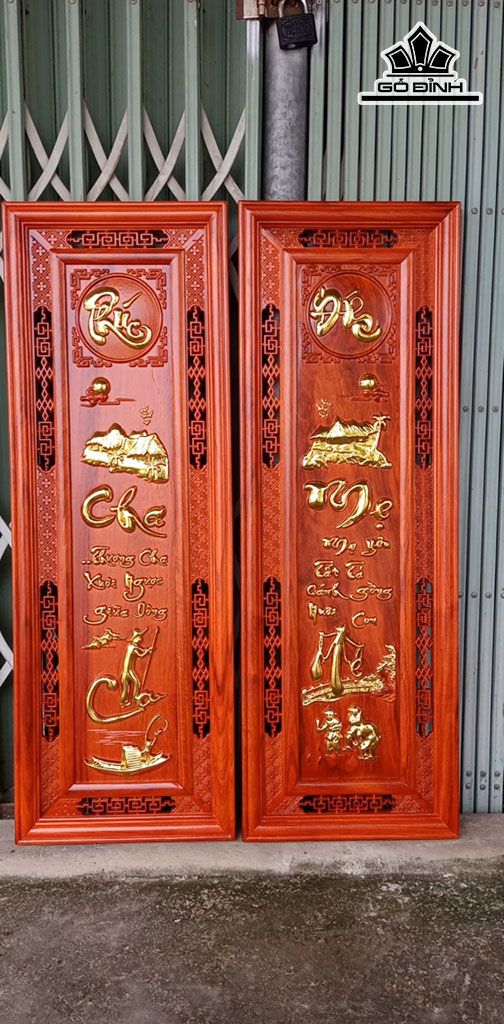 GỖ ĐỈNH
Phúc
Cha
...Thương Cha
Xuôi Ngược
giữa Dòng
Đức
Mẹ
Mẹ yêu
Tần Tả
Gánh gồng
Nuôi Con